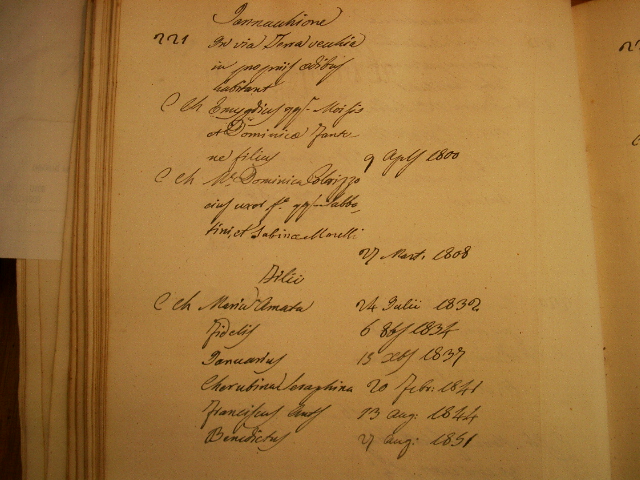 Iannacchione
221 In via Terravecchia
in propriis ædibus
habitant
C Ch Emygdius qq.m Moisis
et Dominicæ Iante-
ne filius 9 Aprlis 1800
C Ch Mr. Dominica Colrizzo
eius uxor f.a qq.m Sabba-
tini, et Sabinæ Morelli
27 Mart. 1808
Filii
C Ch Maria Amata 24 Iulii 1832
Fidelis 6 8bris 1834
Ianuarius 15 Xbris 1837
Cherubina Seraphina 20 Febr: 1841
Franciscus 13 Aug: 1844
Benedictus 27 Aug: 1851